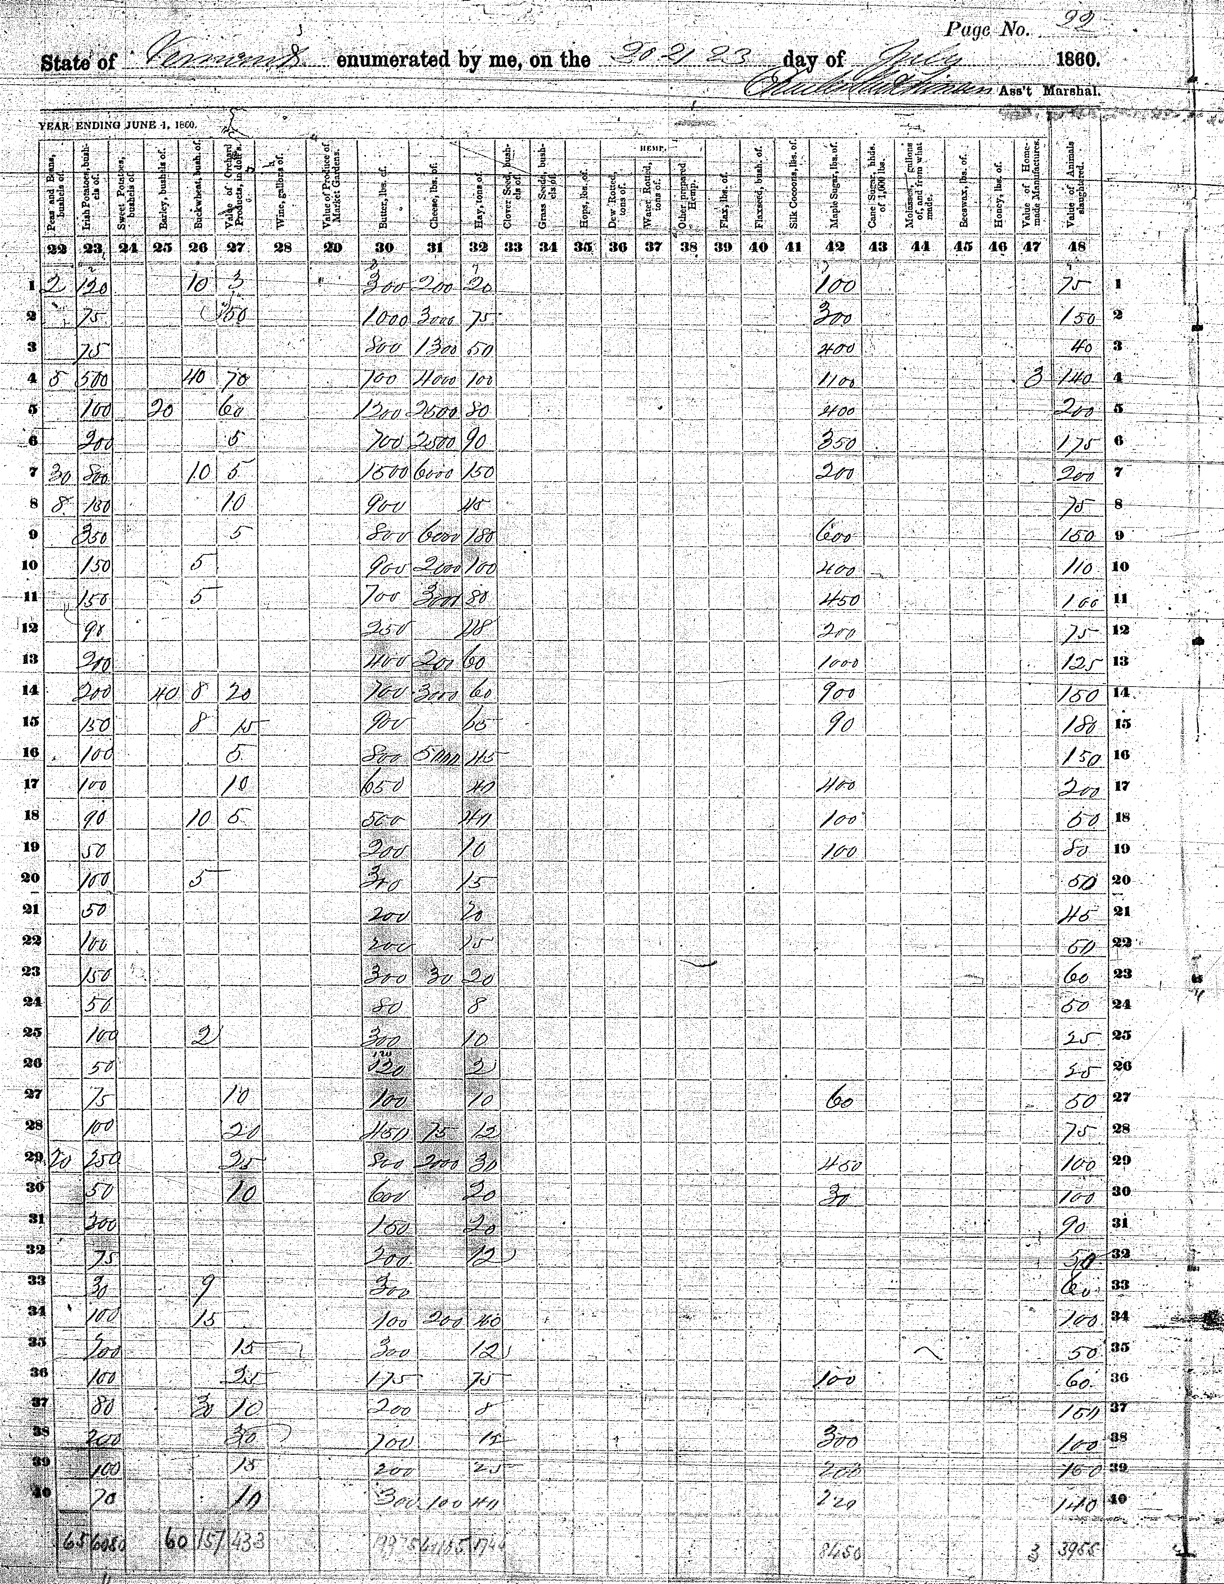 Page No. 22
State of Vermont enumerated by me, on the 20 21 23 day of July 1860.
Ass't Marshal.
YEAR ENDING JUNE 1, 1860.
HEMP.
Peas and Beans, bushels of. Irish Potatoes, bushels of. Sweet Potatoes, bushels of. Barley, bushels of. Buckwheat, bush. of. Value of Orchard Products, in doll's. Wine, gallons of. Value of Produce of Market Gardens. Butter, lbs. of. Cheese, lbs. of. Hay, tons of. Clover Seed, bushels of. Grass Seeds, bushels of. Hops, lbs. of. Dew Rotted, tons of. Water Rotted, tons of. Other prepared Hemp. Flax, lbs. of. Flaxseed, bush. of. Silk Cocoons, lbs. of. Maple Sugar, lbs. of. Cane Sugar, hhds. of 1,000 lbs. Molasses, gallons of, and from what made. Beeswax, lbs. of. Honey, lbs. of. Value of Home-made Manufactures. Value of Animals slaughtered.
22 23 24 25 26 27 28 29 30 31 32 33 34 35 36 37 38 39 40 41 42 43 44 45 46 47 48
1 2 120 10 3 300 200 20 100 75 1
2 75 50 1000 3000 75 300 150 2
3 75 800 1300 50 400 40 3
4 5 500 40 70 100 4000 100 1100 3 140 4
5 100 20 60 1200 2500 80 400 200 5
6 200 5 700 2500 90 350 175 6
7 30 800 10 5 1500 6000 150 200 200 7
8 8 10 900 45 75 8
9 350 5 800 6000 180 600 150 9
10 150 5 900 2000 100 400 110 10
11 150 5 700 3000 80 450 100 11
12 90 250 48 200 75 12
13 200 400 200 60 1000 125 13
14 200 40 8 20 700 3000 60 900 150 14
15 150 8 15 900 65 90 180 15
16 100 5 800 5000 45 150 16
17 100 10 650 40 400 200 17
18 90 10 5 500 40 100 50 18
19 50 200 10 100 80 19
20 100 5 300 15 50 20
21 50 200 20 45 21
22 100 200 15 50 22
23 150 300 30 20 60 23
24 50 80 8 50 24
25 100 2 300 10 25 25
26 50 120 2 25 26
27 75 10 100 10 60 50 27
28 100 20 450 75 12 75 28
29 20 250 25 800 2000 30 450 100 29
30 50 10 600 20 30 100 30
31 200 150 20 90 31
32 75 200 12 50 32
33 30 9 300 60 33
34 100 15 100 200 40 100 34
35 200 15 300 12 50 35
36 100 25 175 75 100 60 36
37 80 30 10 200 8 150 37
38 200 30 700 12 300 100 38
39 100 15 200 25 200 150 39
40 70 10 300 100 40 220 140 40
65 6080 60 157 433 8450 3 3955